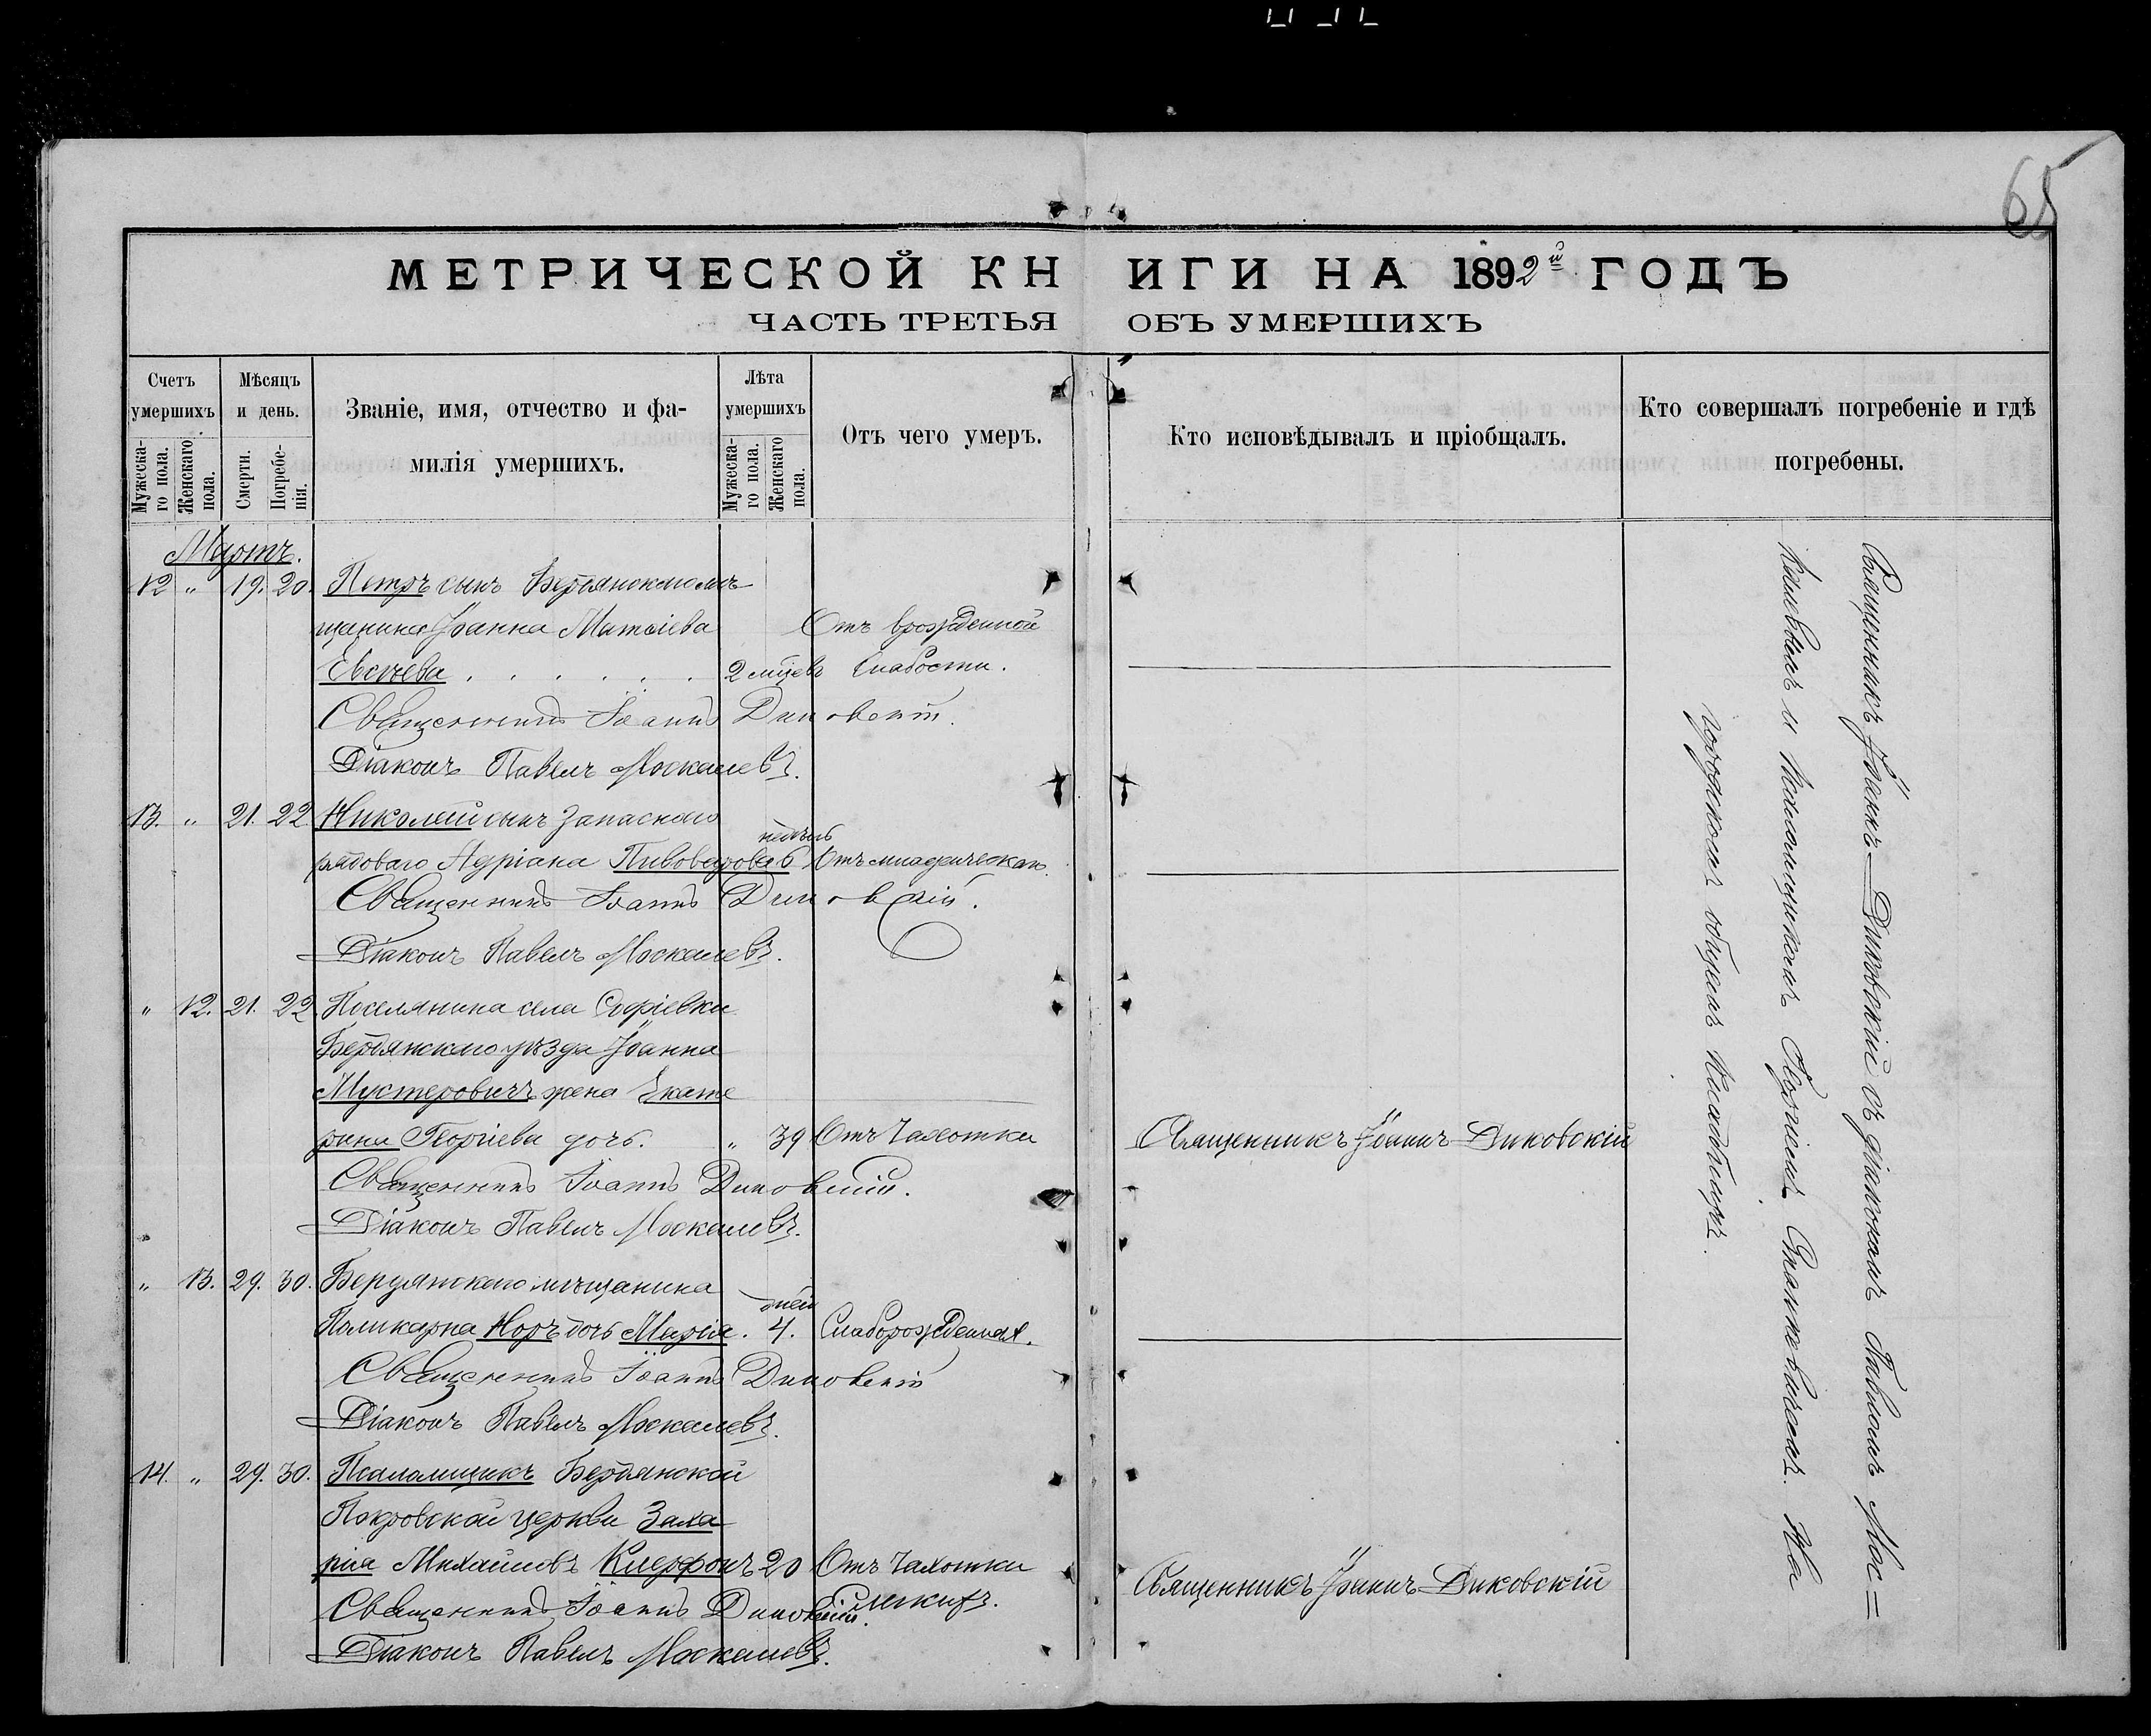 65
МЕТРИЧЕСКОЙ КНИГИ НА 1892й ГОДЪ
ЧАСТЬ ТРЕТЬЯ ОБЪ УМЕРШИХЪ
Счетъ умершихъ
Мужеска-го пола.
Женскаго пола.
Мѣсяцъ и день.
Смерти.
Погребе-нія.
Званіе, имя, отчество и фа-
милія умершихъ.
Лѣта умершихъ
Мужеска-го пола.
Женскаго пола.
Отъ чего умеръ.
Кто исповѣдывалъ и пріобщалъ.
Кто совершалъ погребеніе и гдѣ
погребены.
Мартъ.
12 " 19. 20. Петръ сынъ Бердянскаго мѣ
щанина Іоанна Матѳіева Отъ врожденной
Евсѣева . . . . . . 2 мцевъ слабости.
Священникъ Іоаннъ Диковскій.
Діаконъ Павелъ Москалевъ.
13. " 21. 22 Николай сынъ запаснаго
недѣль
рядоваго Адріана Пивоварова 6 Отъ младенческой
Священникъ Іоаннъ Диковскій.
Діаконъ Павелъ Москалевъ.
" 12. 21. 22. Поселянина села Софіевки
Бердянскаго уѣзда Іоанна
Мустеровичъ жена Екате
рина Георгіева дочь. " 39 Отъ чахотки Священникъ Іоаннъ Диковскій
Священникъ Іоаннъ Диковскій.
Діаконъ Павелъ Москалевъ.
" 13. 29. 30. Бердянскаго мѣщанина
дней
Поликарпа Норъ дочь Марія. 4. Слаборожденная.
Священникъ Іоаннъ Диковскій
Діаконъ Павелъ Москалевъ.
14. " 29. 30. Псаломщикъ Бердянской
Покровской церкви Заха
рія Михайловъ 20 Отъ чахотки Священникъ Іоаннъ Диковскій
легкихъ.
Священникъ Іоаннъ Диковскій.
Діаконъ Павелъ Москалевъ.
Священникъ Іоаннъ Диковскій съ діакономъ Павломъ Мос=
калевымъ и Псаломщикомъ Станкевичемъ. На
городскомъ общемъ кладбищѣ.